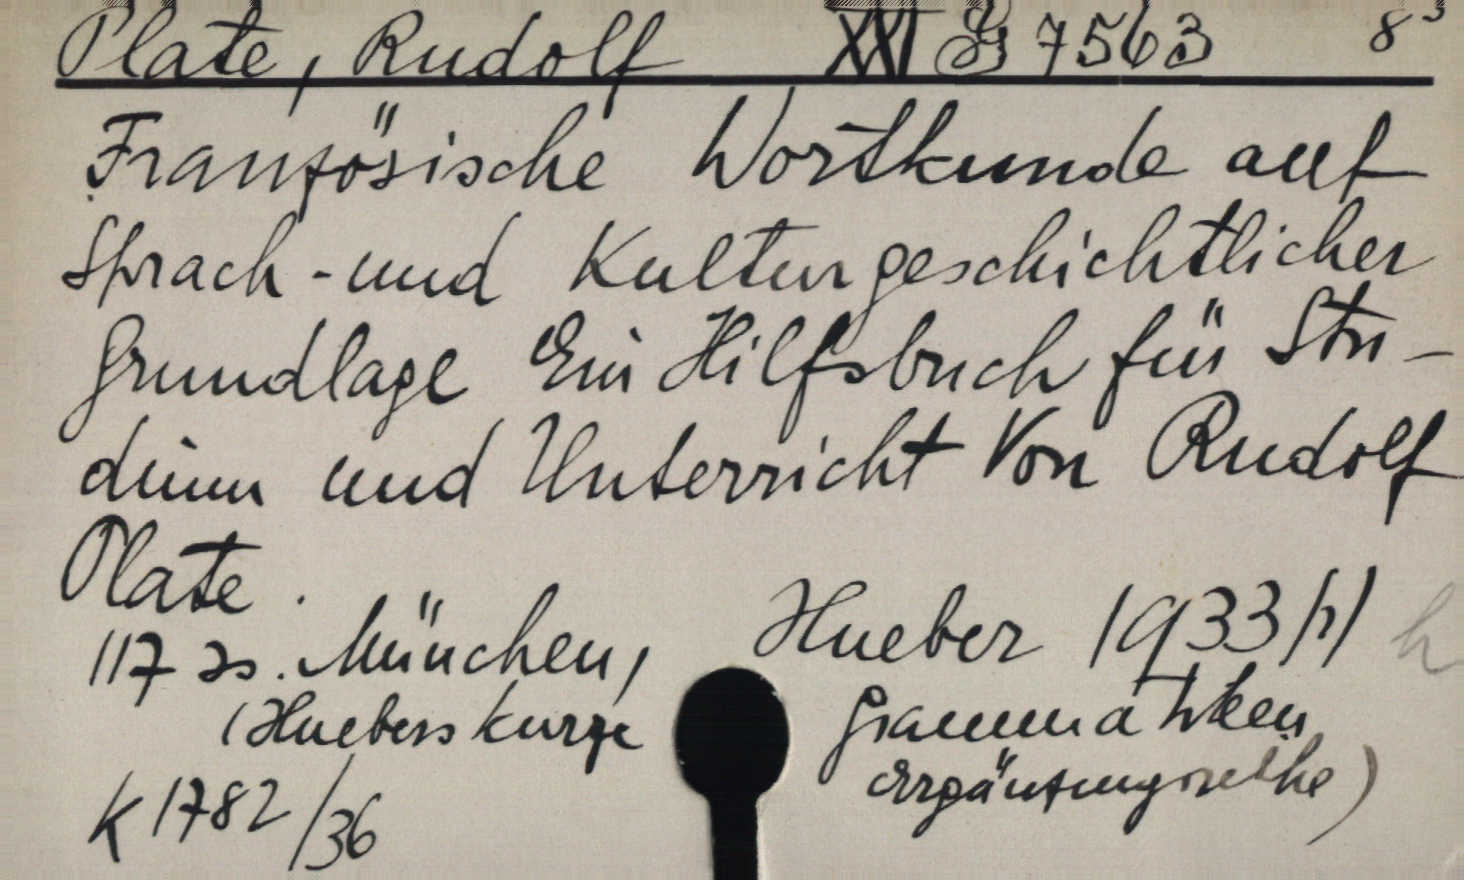 Plate, Rudolf XXI G 7563 8°
Französische Wortkunde auf
Sprach-und Kulturgeschichtlicher
Grundlage Ein Hilfsbuch für Stu-
dium und Unterricht Von Rudolf
Plate.
117 Ss. München, Hueber 1933/1/
(Huebers kurze Grammatiken
Ergänzungsreihe)
K 1782/36